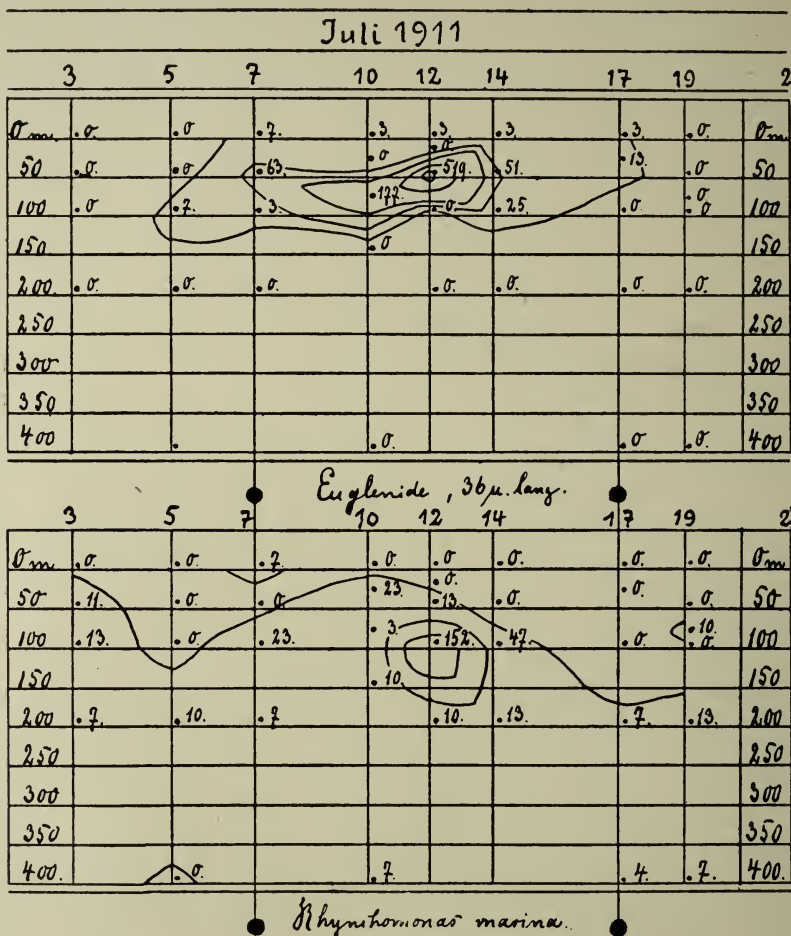 Juli 1911
3 5 7 10 12 14 17 19 2
0 m. .0. .0 .7. .3. .3. .3. .3. .0. 0 m.
.0 .0 .13.
50 .0. .0 .63. .519. 51. .0 50
.177. .0
100 .0 .7. .3. .0. .25. .0 .0 100
150 .0 150
200. .0. .0. .0. .0. .0. .0. .0. 200
250 250
300 300
350 350
400 . .0. .0 .0. 400
Euglenide, 36 µ. lang.
3 5 7 10 12 14 17 19 2
0 m. .0. .0. .7. .0. .0 .0. .0. .0. 0 m
.23. .0 .0.
50 .11. .0. .0. .13. .0. .0. 50
.3. .10.
100 .13. .0. .23. .152. .47. .0. .0. 100
150 .10. 150
200 .7. .10. .7 .10. .13. .7. .13. 200
250 250
300 300
350 350
400. .0. .7. .4. .7. 400.
marina.